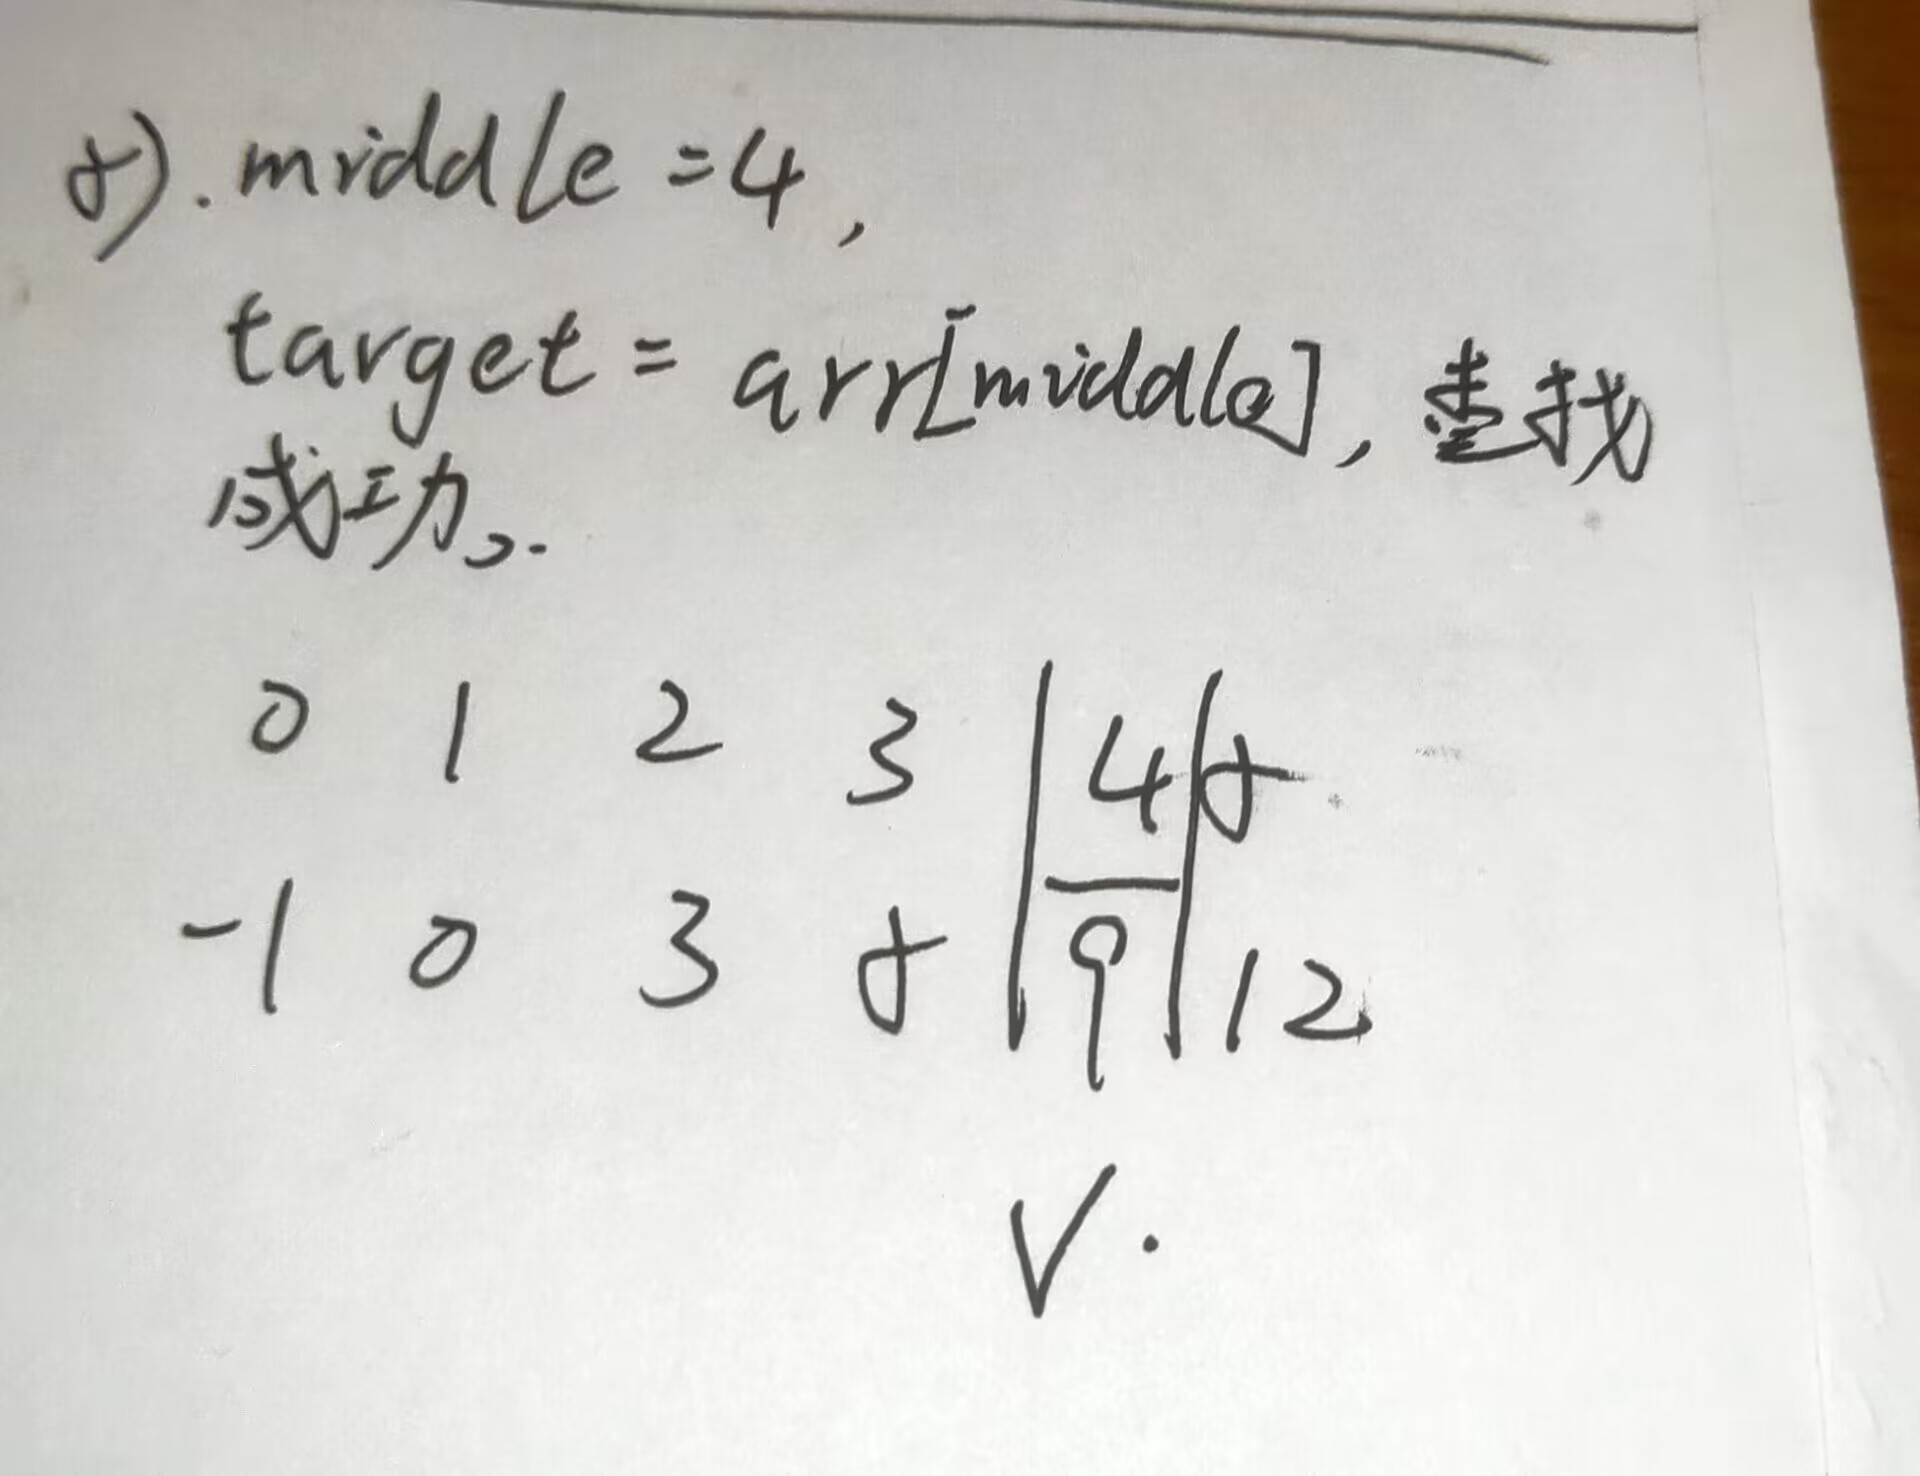 5). middle = 4,
target = arr[middle], 查找
成功。.
0 1 2 3 | 4 | 5
-1 0 3 5 | 9 | 12
√.